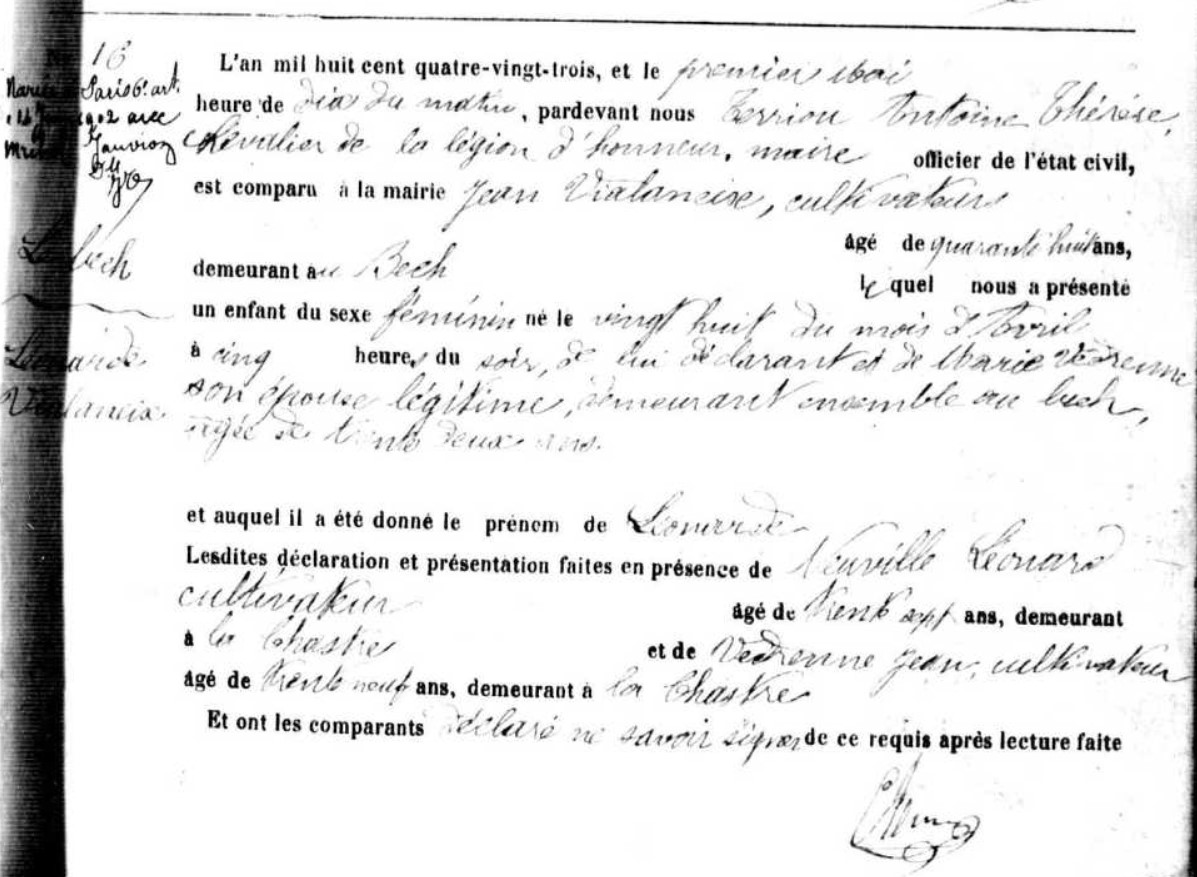 N° 16
Mariée Paris 6e arrt
avec
Le bech
Léonarde
Vialaneix
L'an mil huit cent quatre-vingt-trois, et le premier Mai
heure de dix du matin, pardevant nous Terriou Antoine Thérèse,
Chevalier de la légion d'honneur, maire officier de l'état civil,
est comparu à la mairie Jean Vialaneixe, cultivateur
âgé de quarante huit ans,
demeurant au Bech
lequel nous a présenté
un enfant du sexe féminin né le vingt huit du mois d'Avril
à cinq heures du soir, de lui déclarant et de Marie Vedrenne
son épouse légitime, demeurant ensemble au bech,
agée de trente deux ans.
et auquel il a été donné le prénom de Léonarde
Lesdites déclaration et présentation faites en présence de Neuville Léonard
cultivateur âgé de trente sept ans, demeurant
à la Chastre et de Vedrenne Jean, cultivateur
âgé de trente neuf ans, demeurant à la Chastre
Et ont les comparants déclaré ne savoir signer de ce requis après lecture faite